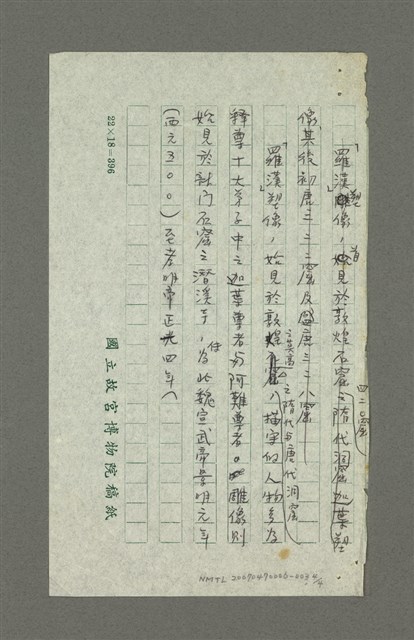 「羅漢」塑像，首見於敦煌石窟之隋代洞窟加葉塑
四二〇窟
像其後初唐三二二窟及盛唐三二八窟
「羅漢」塑像，始見於敦煌
之莫高
之隋代与唐代洞窟
描寫的人物多为
释尊十大弟子中之迦葉尊者与阿難尊者。雕像則
始見於龍門石窟之潛溪寺，
为北魏宣武帝景明元年
(西元500)至孝明帝正光四年(
22×18=396
國立故宮博物院稿紙
NMTL 20090490006-003 4/4